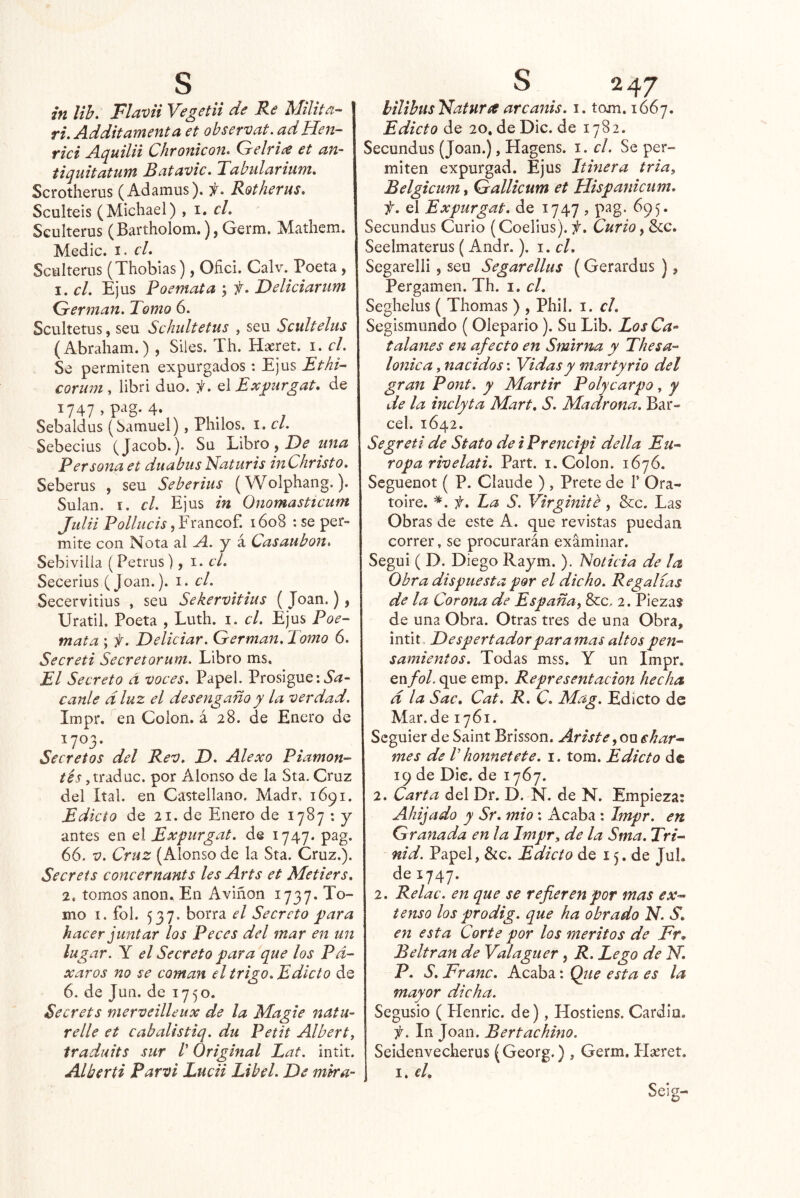 S
in lib. Flavii Vegetii de Re Milita-
ri. Additamenta et observat. ad Hen-
rici Aquilii Chronicon. Gelriæ et an-
tiquitatum Batavic. Tabularium.
Scrotherus (Adamus). ỳ. Rotherus.
Sculteis (Michael), 1. cl.
Sculterus (Bartholom.), Germ. Mathem.
Medic. 1. cl.
Sculterus (Thobias), Ofici. Calv. Poeta,
1. cl. Ejus Poemata ; ỳ. Deliciarum
German. Tomo 6.
Scultetus, seu Schultetus , seu Scultelus
(Abraham.) , Siles. Th. Hæret. 1. cl.
Se permiten expurgados : Ejus Ethi-
corum , libri duo. ỳ. el Expurgat. de
1747 , pag. 4.
Sebaldus (Samuel) , Philos. 1. cl.
Sebecius (Jacob.). Su Libro, De una
Persona et duabus Naturis in Christo.
Seberus , seu Seberius (Wolphang.).
Sulan. 1. cl. Ejus in Onomasticum
Julii Pollucis, Francof. 1608 : se per-
mite con Nota al A. y á Casaubon.
Sebivilla (Petrus), 1. cl.
Secerius (Joan.). 1. cl.
Secervitius , seu Sekervitius (Joan.),
Uratil. Poeta , Luth. 1. cl. Ejus Poe-
mata ; ỳ. Deliciar. German. Tomo 6.
Secreti Secretorum. Libro ms.
El Secreto á voces. Papel. Prosigue: Sa-
canle á luz el desengaño y la verdad.
Impr. en Colon. á 28. de Enero de
1703.
Secretos del Rev. D. Alexo Piamon-
tés, traduc. por Alonso de la Sta. Cruz
del Ital. en Castellano. Madr. 1691.
Edicto de 21. de Enero de 1787 : y
antes en el Expurgat. de 1747. pag.
66. v. Cruz (Alonso de la Sta. Cruz.).
Secrets concernants les Arts et Metiers.
2. tomos anon. En Aviñon 1737. To-
mo 1. fol. 537. borra el Secreto para
hacer juntar los Peces del mar en un
lugar. Y el Secreto para que los Pá-
xaros no se coman el trigo. Edicto de
6. de Jun. de 1750.
Secrets merveilleux de la Magie natu-
relle et cabalistiq. du Petit Albert,
traduits sur l' Original Lat. intit.
Alberti Parvi Lucii Libel. De mira-
S 247
bilibus Naturæ arcanis. 1. tom. 1667.
Edicto de 20. de Dic. de 1782.
Secundus (Joan.), Hagens. 1. cl. Se per-
miten expurgad. Ejus Itinera tria,
Belgicum, Gallicum et Hispanicum.
ỳ. el Expurgat. de 1747 , pag. 695.
Secundus Curio (Coelius). ỳ. Curio, &c.
Seelmaterus (Andr.). 1. cl.
Segarelli , seu Segarellus (Gerardus),
Pergamen. Th. 1. cl.
Seghelus (Thomas) , Phil. 1. cl.
Segismundo (Olepario). Su Lib. Los Ca-
talanes en afecto en Smirna y Thesa-
lonica, nacidos: Vidas y martyrio del
gran Pont. y Martir Polycarpo, y
de la inclyta Mart. S. Madrona. Bar-
cel. 1642.
Segreti de Stato de i Prencipi della Eu-
ropa rivelati. Part. 1. Colon. 1676.
Seguenot ( P. Claude ) , Prete de l' Ora-
toire. *. ỳ. La S. Virginitè , &c. Las
Obras de este A. que revistas puedan
correr, se procurarán exâminar.
Segui ( D. Diego Raym. ). Noticia de la
Obra dispuesta por el dicho. Regalías
de la Corona de España, &c. 2. Piezas
de una Obra. Otras tres de una Obra,
intit. Despertador para mas altos pen-
samientos. Todas mss. Y un Impr.
en fol. que emp. Representacion hecha
á la Sac. Cat. R. C. Mag. Edicto de
Mar. de 1761.
Seguier de Saint Brisson. Ariste, ou char-
mes de l' honnetete. 1. tom. Edicto de
19 de Dic. de 1767.
2. Carta del Dr. D. N. de N. Empieza:
Ahijado y Sr. mio : Acaba : Impr. en
Granada en la Impr, de la Sma. Tri-
nid. Papel, &c. Edicto de 15. de Jul.
de 1747.
2. Relac. en que se refieren por mas ex-
tenso los prodig. que ha obrado N. S.
en esta Corte por los meritos de Fr.
Beltran de Valaguer , R. Lego de N.
P. S. Franc. Acaba: Que esta es la
mayor dicha.
Segusio ( Henric. de) , Hostiens. Cardin.
ỳ. In Joan. Bertachino.
Seidenvecherus (Georg.) , Germ. Hæret.
1. cl.
Seig-